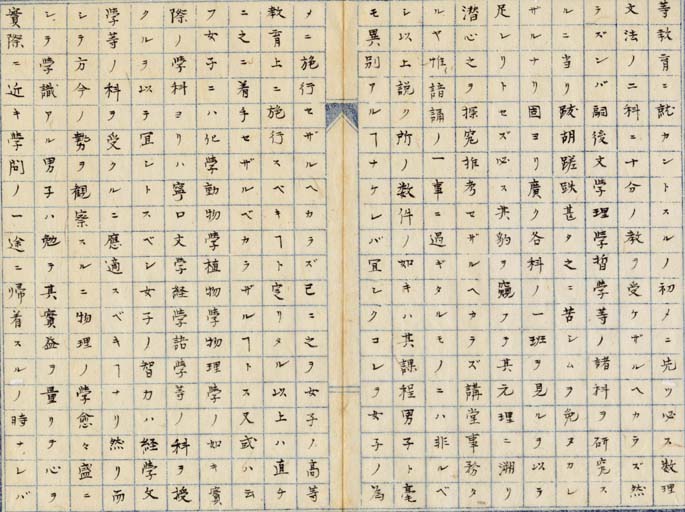 等教育ニ就カントスルノ初メニ先ツ必ス数理
文法ノ二科ニ十分ノ教ヲ受ケザルヘカラズ然
ラズンバ嗣後文学理學哲學等ノ諸科ヲ研究ス
ルニ当リ跋胡蹉跌甚タ之ニ苦シムヲ免ヌカレ
ザルナリ固ヨリ廣ク各科ノ一班ヲ見ルヲ以テ
足レリトセズ必ス其豹ヲ窺フヲ其元理ニ溯リ
潜心之ヲ探究推考セザルヘカラズ講堂事務タ
ルヤ惟諳誦ノ一事ニ過ギタルモノニハ非ルベ
シ以上説ク所ノ数件ノ如キハ其課程男子ト毫
モ異別アルヿナケレバ冝シクコレヲ女子ノ為
メニ施行セザルヘカラズ已ニ之ヲ女子ノ高等
教育上ニ施行スベキヿト定リタル以上ハ直チ
ニ之ニ着手セザルベカラザルヿトス又或ハ云
フ女子ニハ化學動物學植物學物理學ノ如キ實
際ノ學科ヨリハ寧ロ文学経學語學等ノ科ヲ授
クルヲ以テ冝シトスベシ女子ノ智力ハ経學文
學等ノ科ヲ受クルニ應適スベキヿナリ然リ而
シテ方今ノ勢ヲ観察スルニ物理ノ學愈々盛ニ
シテ學識アル男子ハ勉テ其實益ヲ量リテ心ヲ
實際ニ近キ學問ノ一途ニ帰着スルノ時ナレバ